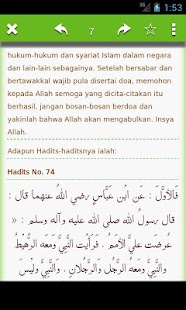 3G 1:53
7
hukum-hukum dan syariat Islam dalam negara
dan lain-lain sebagainya. Setelah bersabar dan
bertawakkal wajib pula disertai doa, memohon
kepada Allah semoga yang dicita-citakan itu
berhasil, jangan bosan-bosan berdoa dan
yakinlah bahwa Allah akan mengabulkan. Insya
Allah.
Adapun Hadits-haditsnya ialah:
Hadits No. 74
فَالأَوَّلُ : عَنِ ابْنِ عَبَّاسٍ رضي اللهُ عنهما قال :
قال رسولُ اللهِ صلى اللهُ عليه وآله وسلم : «
عُرضَت عليَّ الأمَمُ . فَرأيت النَّبيَّ ومعَه الرُّهيطُ
والنَّبيَّ ومَعهُ الرَّجُل والرَّجُلان . والنَّبيَّ وليْسَ